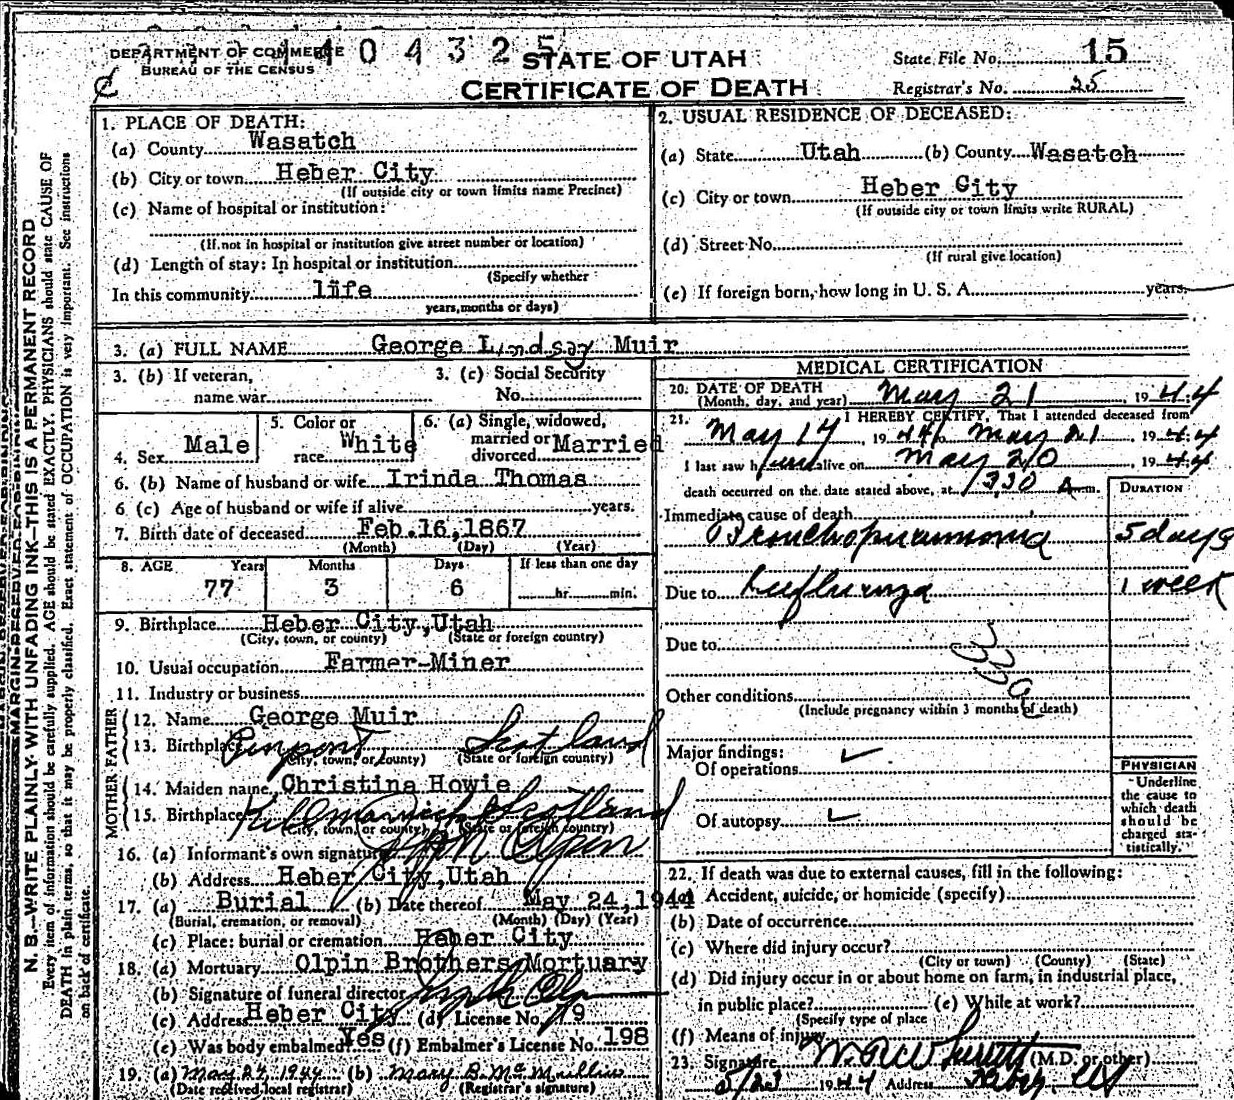 1404325
DEPARTMENT OF COMMERCE
BUREAU OF THE CENSUS
STATE OF UTAH
CERTIFICATE OF DEATH
State File No. 15
Registrar's No. 25
N. B.—WRITE PLAINLY WITH UNFADING INK—THIS IS A PERMANENT RECORD
Every item of information should be carefully supplied. AGE should be stated EXACTLY. PHYSICIANS should state CAUSE OF
DEATH in plain terms, so that it may be properly classified. Exact statement of OCCUPATION is very important. See instructions
on back of certificate.
1. PLACE OF DEATH:
(a) County Wasatch
(b) City or town Heber City
(If outside city or town limits name Precinct)
(c) Name of hospital or institution:
(If not in hospital or institution give street number or location)
(d) Length of stay: In hospital or institution
(Specify whether
In this community life
years, months or days)
2. USUAL RESIDENCE OF DECEASED:
(a) State Utah (b) County Wasatch
(c) City or town Heber City
(If outside city or town limits write RURAL)
(d) Street No.
(If rural give location)
(e) If foreign born, how long in U. S. A. years.
3. (a) FULL NAME George Lindsay Muir
3. (b) If veteran,
name war
3. (c) Social Security
No.
4. Sex Male
5. Color or
race White
6. (a) Single, widowed,
married or
divorced Married
6. (b) Name of husband or wife Irinda Thomas
6 (c) Age of husband or wife if alive years.
7. Birth date of deceased Feb. 16, 1867
(Month) (Day) (Year)
8. AGE Years Months Days If less than one day
77 3 6 hr. min.
9. Birthplace Heber City, Utah
(City, town, or county) (State or foreign country)
10. Usual occupation Farmer-Miner
11. Industry or business
FATHER
12. Name George Muir
13. Birthplace Scotland
(City, town, or county) (State or foreign country)
MOTHER
14. Maiden name Christina Howie
15. Birthplace Kilmarnick Scotland
(City, town, or county) (State or foreign country)
16. (a) Informant's own signature Olpin
(b) Address Heber City, Utah
17. (a) Burial (b) Date thereof May 24, 1944
(Burial, cremation, or removal) (Month) (Day) (Year)
(c) Place: burial or cremation Heber City
18. (a) Mortuary Olpin Brothers Mortuary
(b) Signature of funeral director
(c) Address Heber City (d) License No. 79
(e) Was body embalmed? Yes (f) Embalmer's License No. 198
19. (a) May 27, 1944 (b) Mary B. McMullin
(Date received local registrar) (Registrar's signature)
MEDICAL CERTIFICATION
20. DATE OF DEATH
(Month, day, and year) May 21 1944
21. I HEREBY CERTIFY, That I attended deceased from
May 17, 1944 to May 21, 1944
I last saw him alive on May 20, 1944
death occurred on the date stated above, at 1330 A m.
DURATION
Immediate cause of death
Bronchopneumonia 5 days
Due to Influenza 1 week
Due to
33a
Other conditions
(Include pregnancy within 3 months of death)
Major findings:
Of operations
Of autopsy
PHYSICIAN
Underline
the cause to
which death
should be
charged sta-
tistically.
22. If death was due to external causes, fill in the following:
(a) Accident, suicide, or homicide (specify)
(b) Date of occurrence
(c) Where did injury occur?
(City or town) (County) (State)
(d) Did injury occur in or about home on farm, in industrial place,
in public place? (e) While at work?
(Specify type of place
(f) Means of injury
23. Signature (M.D. or other)
5/23 1944 Address Heber, Ut